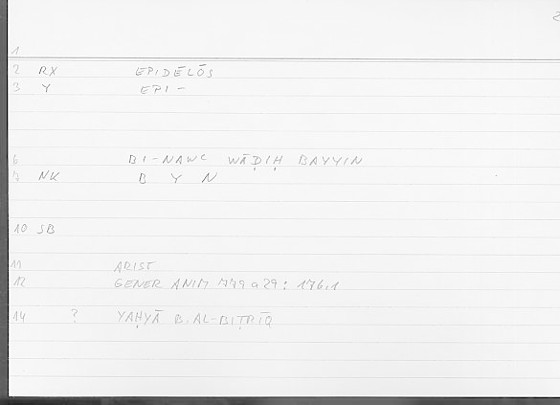 1
2 RX EPIDĒLŌS
3 Y EPI-
6 BI-NAWʿ WĀḌIḤ BAYYIN
7 NK B Y N
10 SB
11 ARIST
12 GENER ANIM 749 a 29 : 176.1
14 ? YAḤYĀ B. AL-BIṬRĪQ